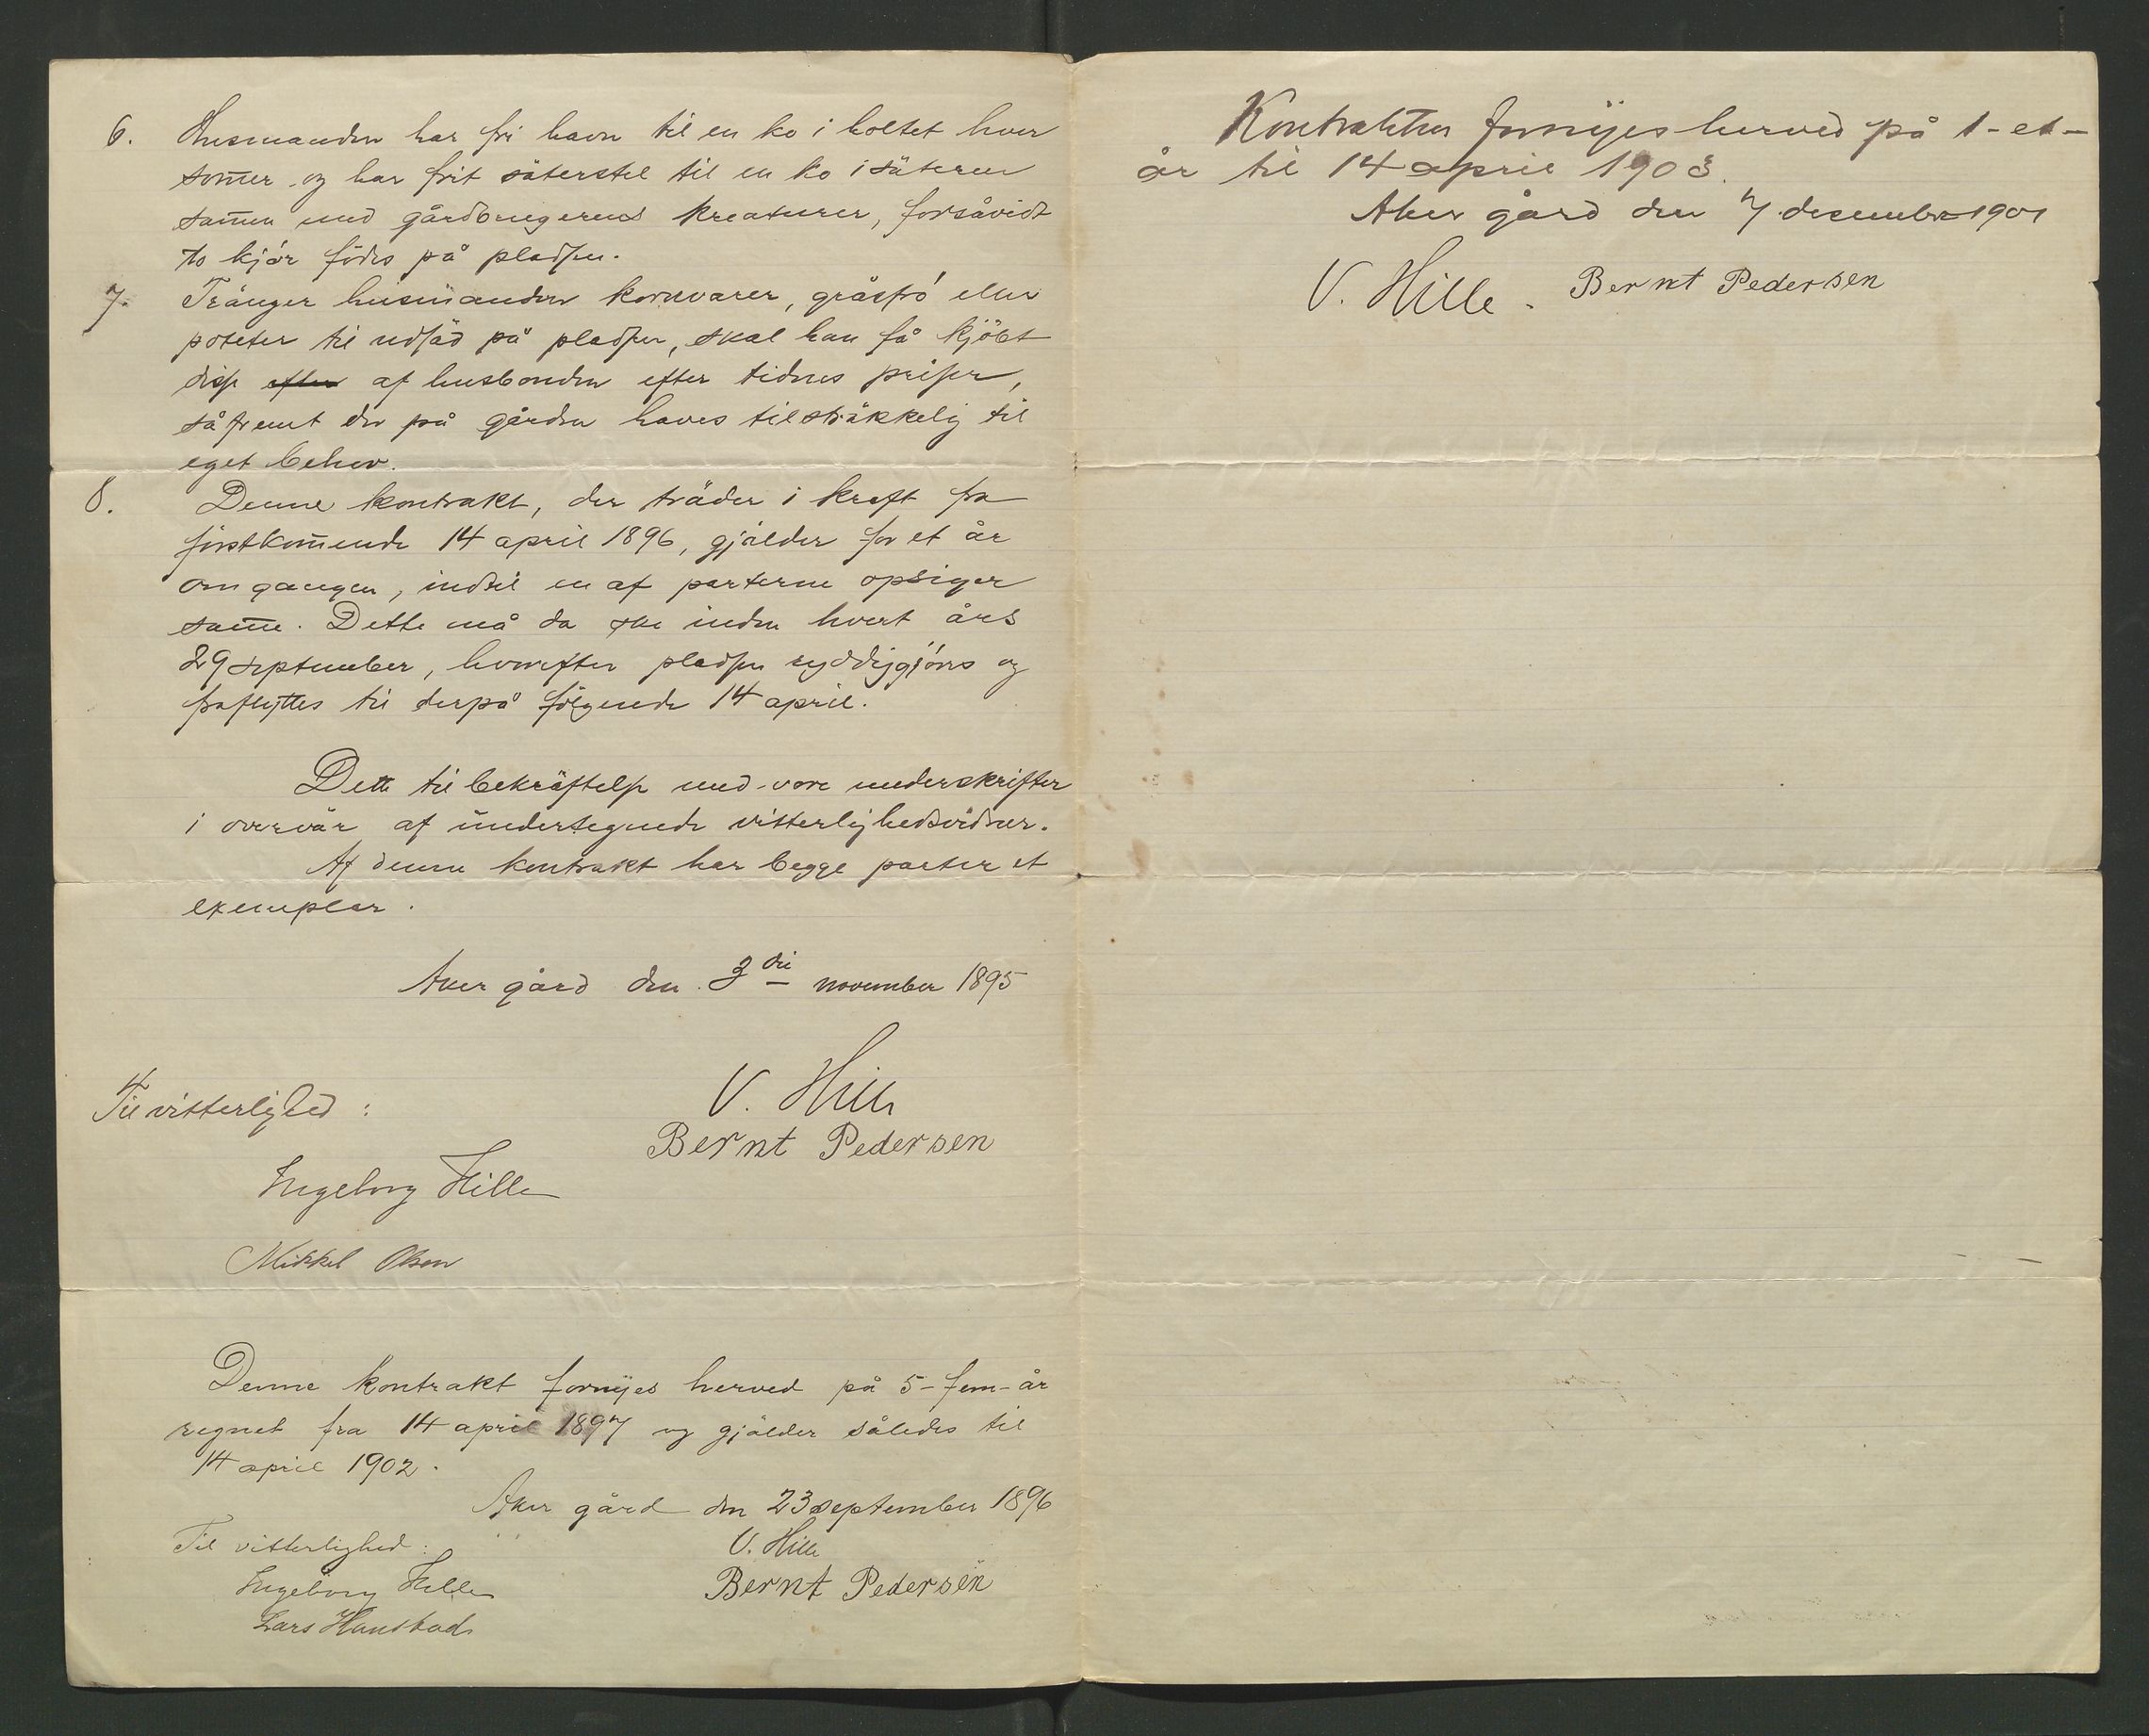 6. Husmanden har fri havn til en ko i holtet hver
som̄er og har frit säterstel til en ko i säteren
sam̄en med gårdbrugerens kreaturer, forsåvidt
to kjör födes på pladsen.
7. Tränger husmanden kornvarer, gräsfrö eller
poteter til udsäd på pladsen, skal han få kjöbt
disse efter af husbonden efter tidens priser,
såfremt der på gården haves tilsträkkelig til
eget behov.
8. Denne kontrakt, der träder i kraft fra
förstkom̄ende 14 april 1896, gjälder for et år
om gangen, indtil en af parterne opsiger
sam̄e. Dette må da ske inden hvert års
29 september, hvorefter pladsen ryddiggjöres og
fraflyttes til derpå fölgende 14 april.
Dette til bekräftelse med vore underskrifter
i overvär af undertegnede vitterlighedsvidner.
Af denne kontrakt har begge parter et
exemplar.
Aker gård den 3die november 1895
V. Hille
Bernt Pedersen
Til vitterlighed:
Ingeborg Hille
Mikkel Olsen
Denne kontrakt fornyes herved på 5-fem-år
regnet fra 14 april 1897 og gjälder således til
14 april 1902.
Aker gård den 23 september 1896
V. Hille
Bernt Pedersen
Til vitterlighed:
Ingeborg Hille
Lars Hanstad
Kontrakten fornyes herved på 1-et-
år til 14 april 1903.
Aker gård den 7 desember 1901
V. Hille. Bernt Pedersen